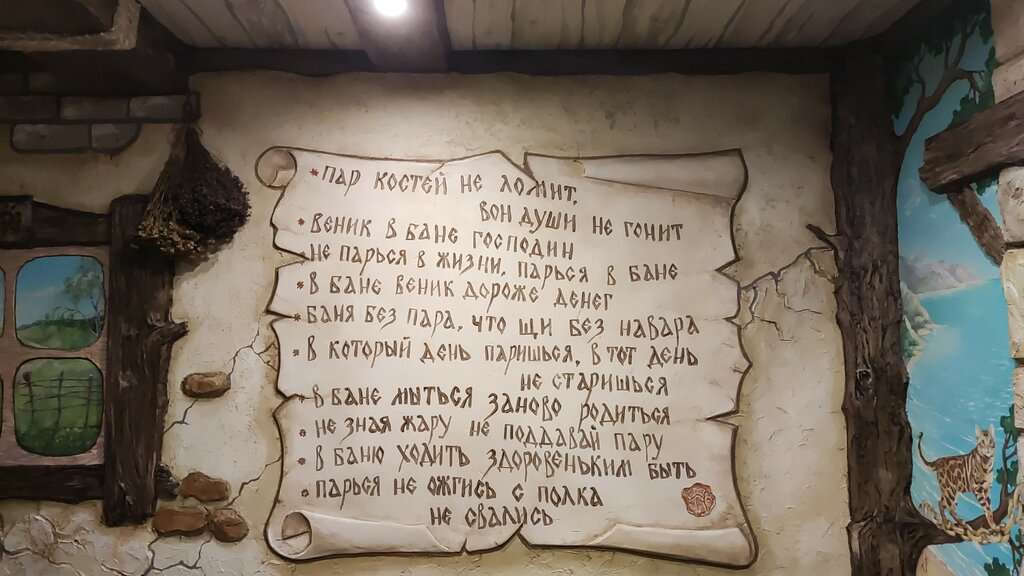 * ПАР КОСТЕЙ НЕ ЛОМИТ,
ВОН ДУШИ НЕ ГОНИТ
* ВЕНИК В БАНЕ ГОСПОДИН
НЕ ПАРЬСЯ В ЖИЗНИ, ПАРЬСЯ В БАНЕ
* В БАНЕ ВЕНИК ДОРОЖЕ ДЕНЕГ
* БАНЯ БЕЗ ПАРА, ЧТО ЩИ БЕЗ НАВАРА
* В КОТОРЫЙ ДЕНЬ ПАРИШЬСЯ, В ТОТ ДЕНЬ
НЕ СТАРИШЬСЯ
* В БАНЕ МЫТЬСЯ ЗАНОВО РОДИТЬСЯ
* НЕ ЗНАЯ ЖАРУ НЕ ПОДДАВАЙ ПАРУ
* В БАНЮ ХОДИТЬ ЗДОРОВЕНЬКИМ БЫТЬ
* ПАРЬСЯ НЕ ОЖГИСЬ С ПОЛКА
НЕ СВАЛИСЬ